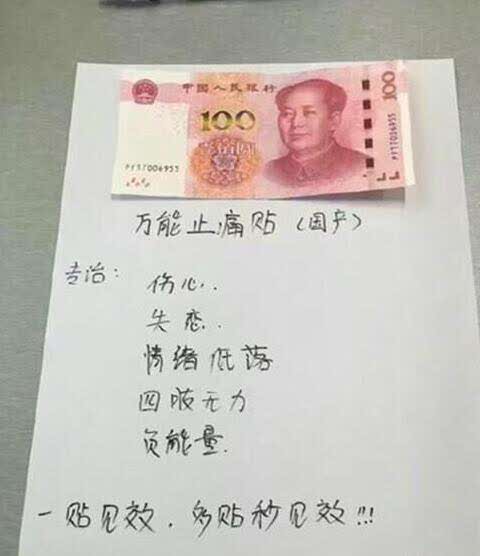 中国人民银行
100
100
PY37006955
PY37006955
万能止痛贴（国产）
专治：
伤心.
失恋.
情绪低落
四肢无力
负能量.
一贴见效，多贴秒见效!!!